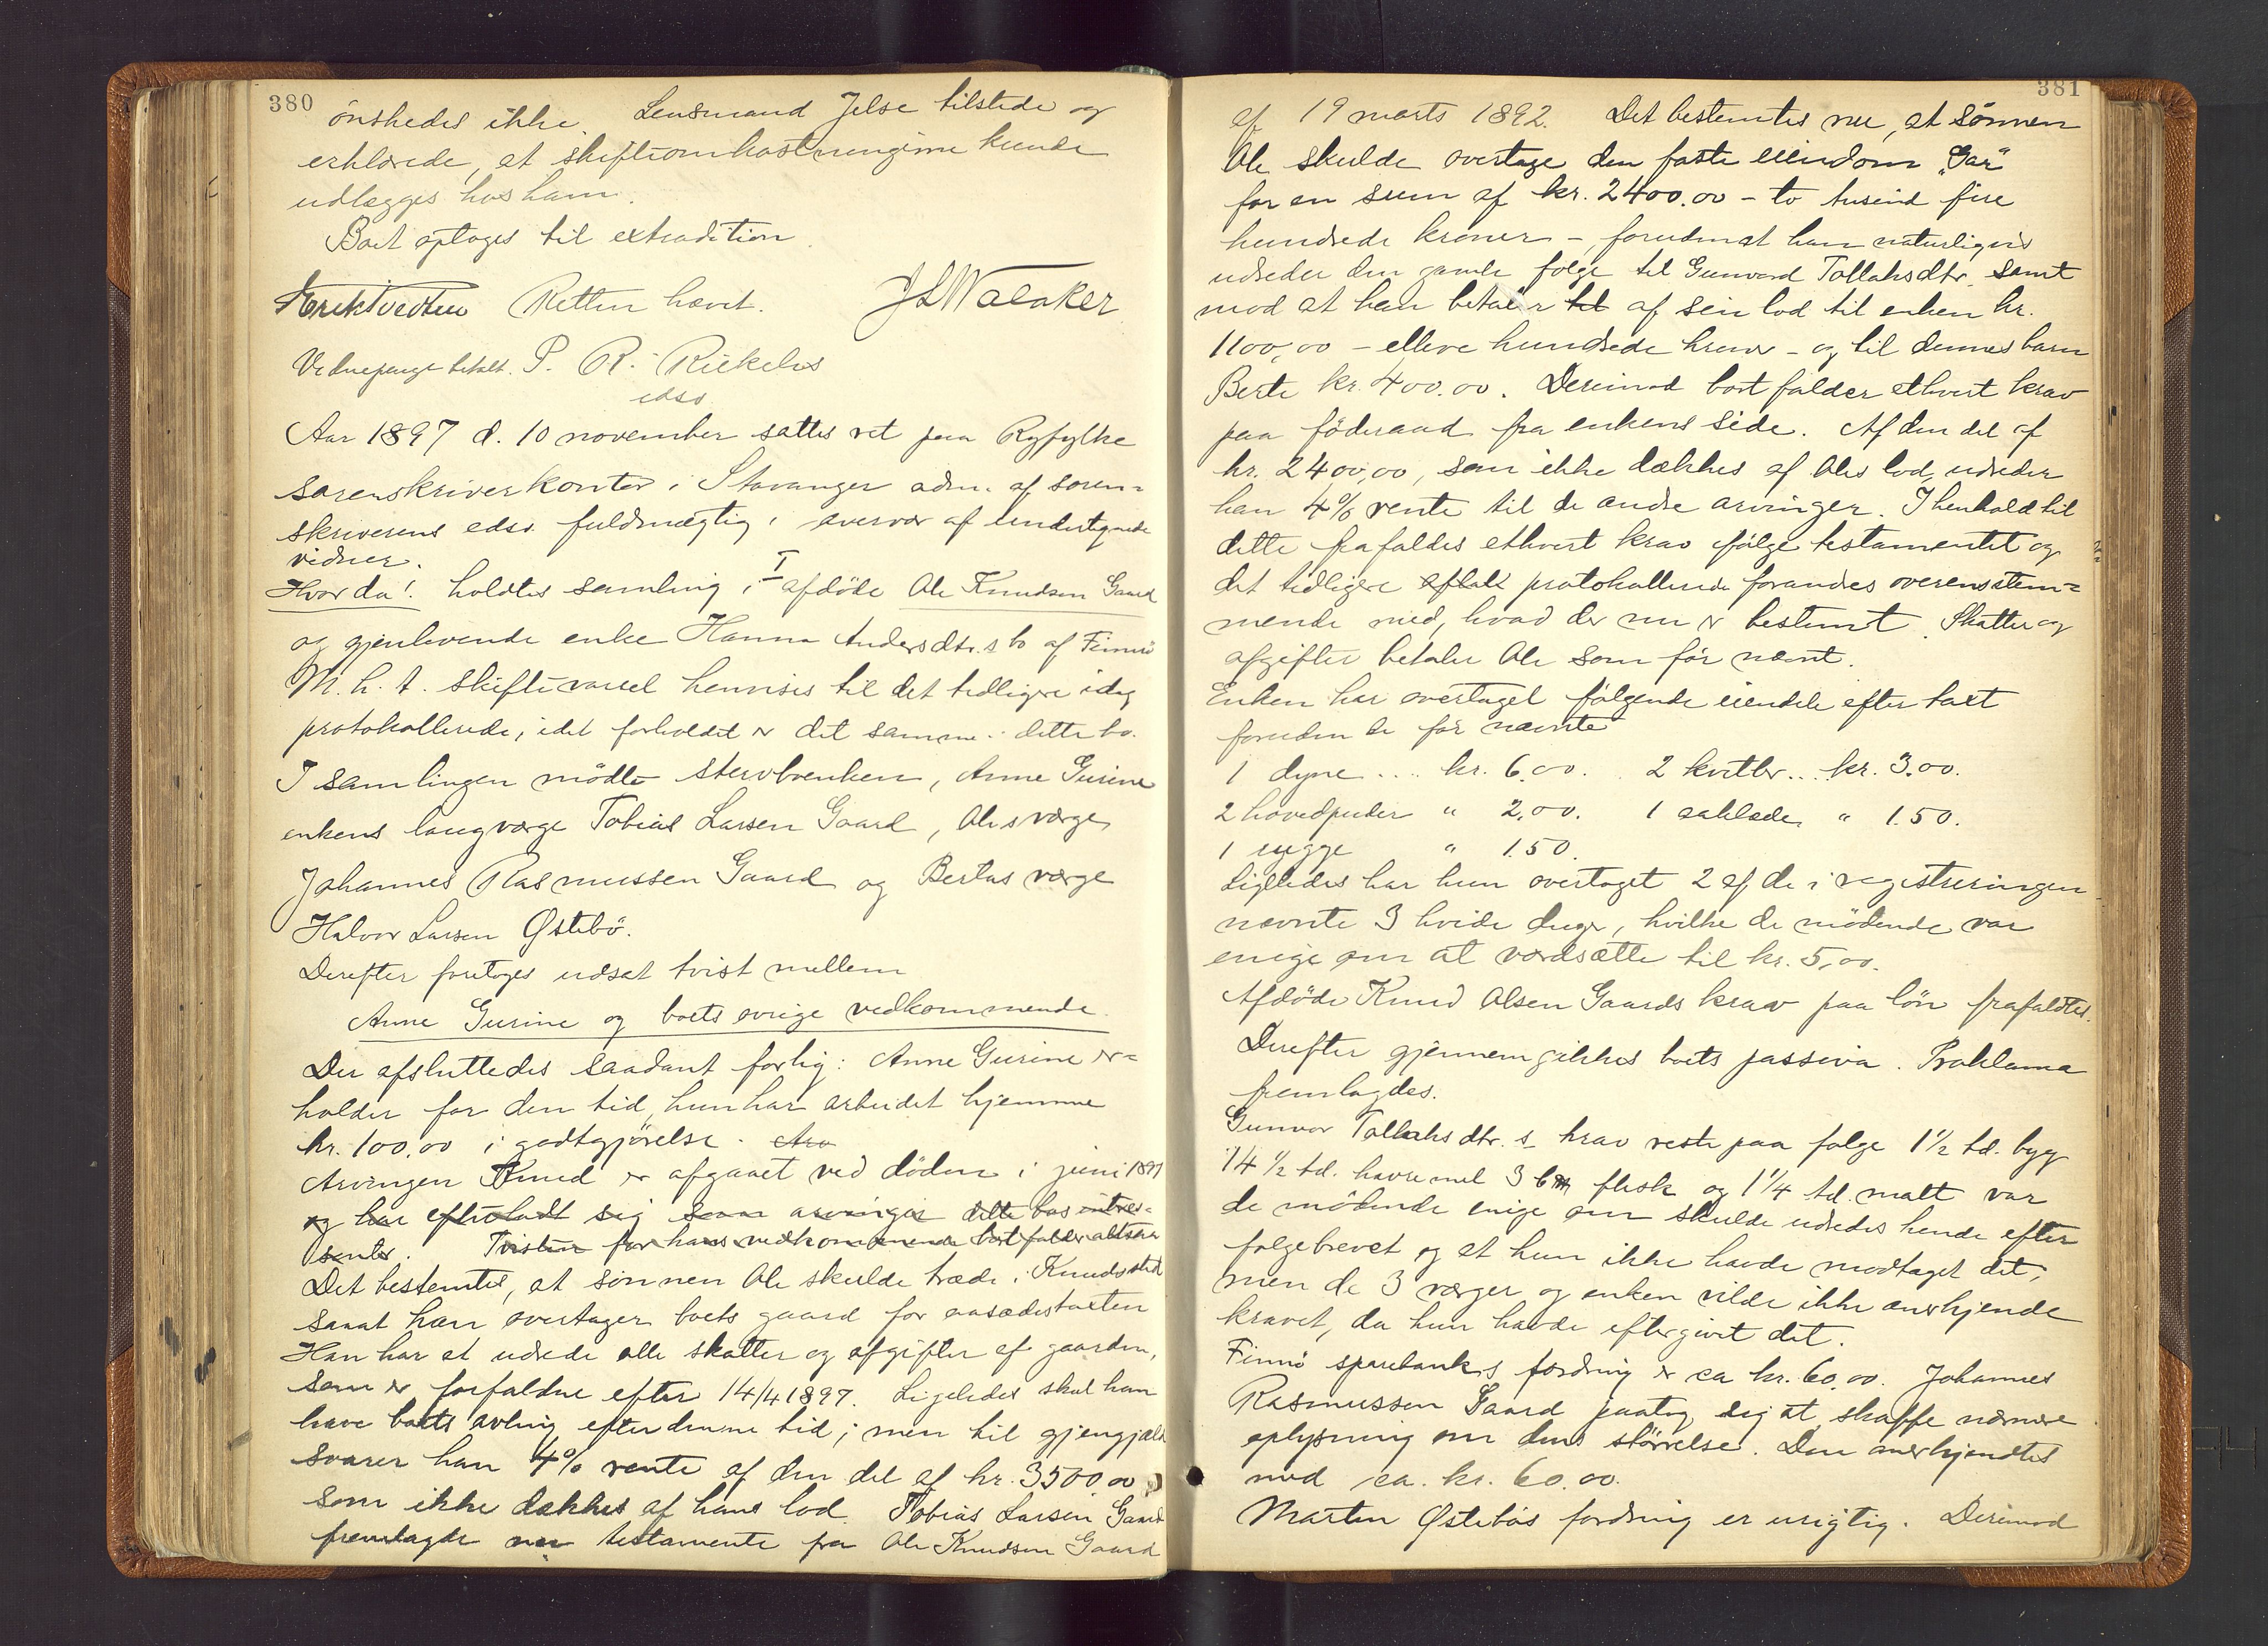 380
ønskedes ikke. Lensmand Jelse tilstede og
erklærede, at skifteomkostningerne kunde
udlægges hos ham.
Boet optoges til extradition.
Retten hævet. J L Walaker
Vidnepenge betalt. P. R.
edsv
Aar 1897 d. 10 november sattes ret paa Ryfylke
sorenskriverkontor i Stavanger adm. af soren=
skriverens edsv. fuldmægtig i overvær af undertegnede
vidner.
Hvorda! holdtes samling i I afdøde Ole Knudsen Gaard
og gjenlevende enke Hanna Andersdtr.s bo af Finnø
M. h. t. skiftevarsel henvises til det tidligere idag
protokollerede, idet forholdet er det samme i dette bo.
I samlingen mødte stervboenken, Anne Gurine
enkens laugværge Tobias Larsen Gaard, Oles værge
Johannes Rasmussen Gaard og Bertas værge
Halvor Larsen Østebø.
Derefter foretoges udsat tvist mellem
Anne Gurine og boets øvrige vedkommende.
Der afsluttedes saadant forlig: Anne Gurine er=
holder for den tid, hun har arbeidet hjemme
kr. 100,00 i godtgjørelse. Arv
Arvingen Knud er afgaaet ved døden i juni 1897
og har efterladt sig som arvinger dette bos intres=
senter. Tvisten for hans vedkommende bortfalder altsaa
Det bestemtes, at sønnen Ole skulde træde i Knuds sted
saaat han overtager boets gaard for aasædestaxten
Han har at udrede alle skatter og afgifter af gaarden,
som er forfaldne efter 14/4 1897. Ligeledes skal han
have boets avling efter denne tid; men til gjengjæld
svarer han 4% rente af den del af kr. 3500,00
som ikke dækkes af hans lod. Tobias Larsen Gaard
fremlagde nu testamente fra Ole Knudsen Gaard
381
af 19 marts 1892. Det bestemtes nu, at sønnen
Ole skulde overtage den faste eiendom "Gar"
for en sum af kr. 2400.00 - to tusind fire
hundrede kroner -, forudenat han naturligvis
udreder den gamle følge til Gunvord Tollaksdtr. samt
mod at han betaler til af sin lod til enken kr.
1100,00 - elleve hundrede kroner - og til dennes barn
Berte kr. 400.00. Derimod bortfalder ethvert krav
paa føderaad fra enkens side. Af den del af
kr. 2400,00, som ikke dækkes af Oles lod, udreder
han 4% rente til de andre arvinger. I henhold til
dette frafaldes ethvert krav ifølge testamentet og
det tidligere aftalt protokollerede forandres overensstem=
mende med, hvad der nu er bestemt. Skatter og
afgifter betaler Ole som før nævnt.
Enken har overtaget følgende eiendele efter taxt
foruden de før nævnte
1 dyne .... kr. 6.00. 2 kvitler.. kr. 3.00.
2 hovedpuder " 2,00. 1 aaklæde " 1.50.
1 " 1.50.
Ligeledes har hun overtaget 2 af de i registreringen
nævnte 3 hvide duge, hvilke de mødende var
enige om at værdsætte til kr. 5,00.
Afdøde Knud Olsen Gaards krav paa løn frafaldtes.
Derefter gjennemgikkes boets passiva. Proklama
fremlagdes.
Gunvor Tollaksdtr.s krav reste paa følge 1½ td. byg
14½ td. havremel 3 flesk og 1¼ td. malt var
de mødende enige om skulde udredes hende efter
følgebrevet og at hun ikke havde modtaget det;
men de 3 værger og enken vilde ikke anerkjende
kravet, da hun havde eftergivet det.
Finnø sparebanks fordring er ca kr. 60.00. Johannes
Rasmussen Gaard paatog sig at skaffe nærmere
oplysning om dens størrelse. Den anerkjendtes
med ca. kr. 60.00.
Marten Østebøs fordring er urigtig. Derimod